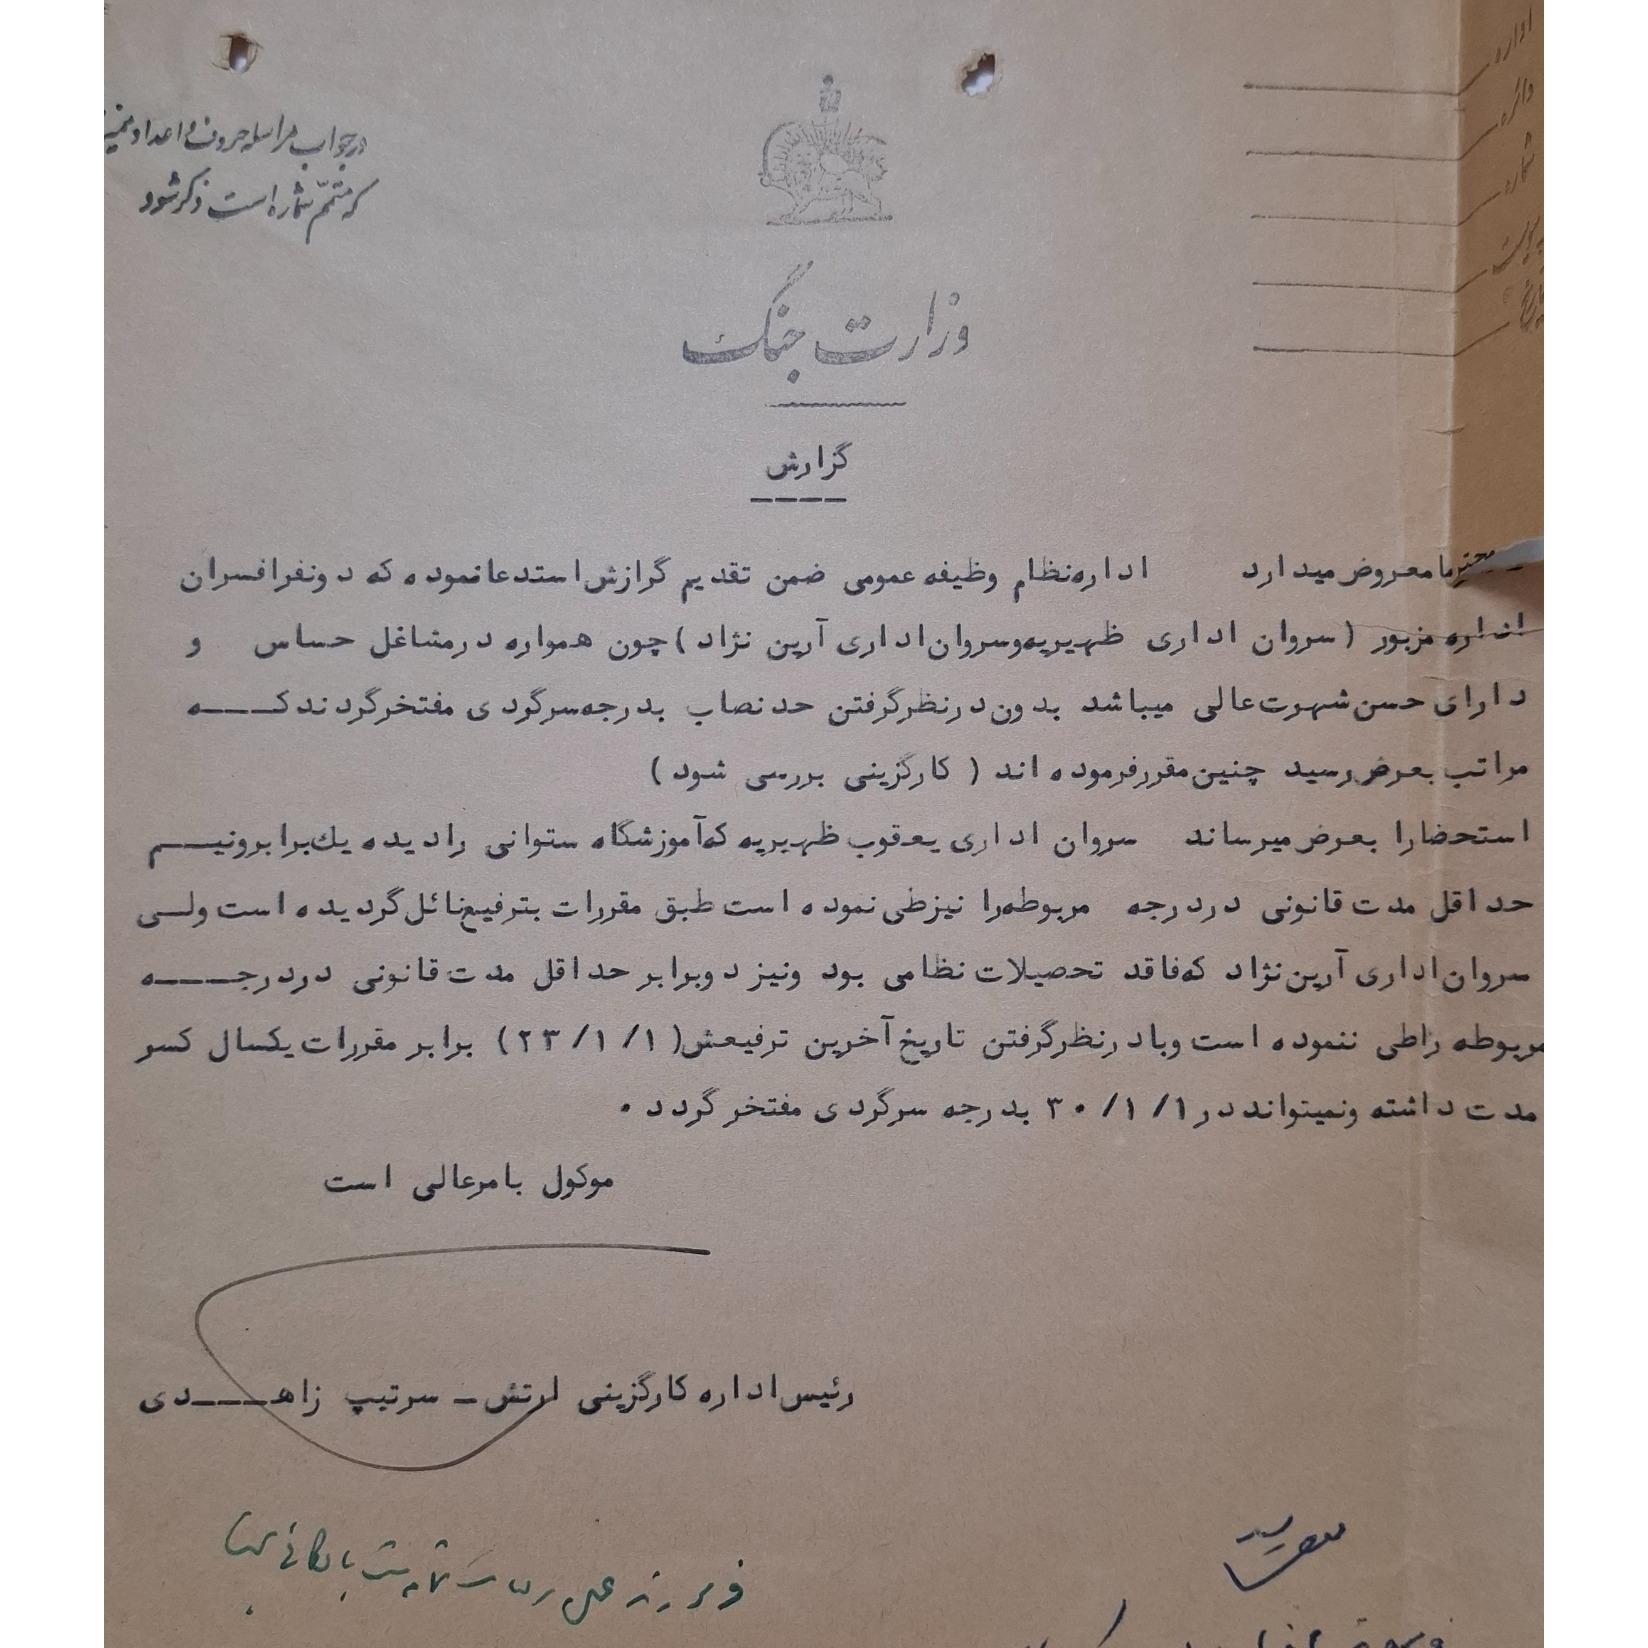 اداره
دائره
شماره
تاریخ
در جواب مراسله حروف و اعداد
که متمم شماره است ذکر شود
وزارت جنگ
گزارش
محترما معروض میدارد اداره نظام وظیفه عمومی ضمن تقدیم گرازش استدعا نموده که دونفر افسران
اداره مزبور ( سروان اداری ظهیریه و سروان اداری آرین نژاد ) چون همواره در مشاغل حساس و
دارای حسن شهرت عالی میباشد بدون در نظر گرفتن حد نصاب بدرجه سرگردی مفتخر گردند کـــه
مراتب بعرض رسید چنین مقرر فرموده اند ( کارگزینی بررسی شود )
استحضارا بعرض میرساند سروان اداری یعقوب ظهیریه که آموزشگاه ستوانی را دیده یك برابر ونیـــم
حداقل مدت قانونی در درجه مربوطه را نیز طی نموده است طبق مقررات بترفیع نائل گردیده است ولـــی
سروان اداری آرین نژاد که فاقد تحصیلات نظامی بود ونیز دوبرابر حداقل مدت قانونی در درجـــه
مربوطه راطی ننموده است وبا در نظر گرفتن تاریخ آخرین ترفیعش ( ۲۳/۱/۱ ) برابر مقررات یکسال کسر
مدت داشته ونمیتواند در ۳۰/۱/۱ بدرجه سرگردی مفتخر گردد .
موکول بامر عالی است
رئیس اداره کارگزینی ارتش ـ سرتیپ زاهـــدی